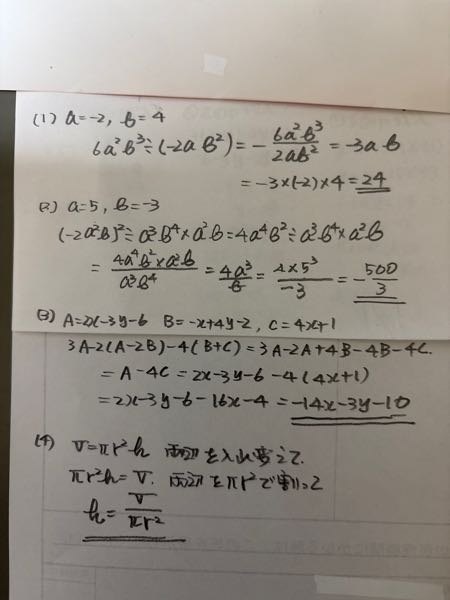 (1) a=-2, b=4
6a²b³÷(-2ab²)=-6a²b³/2ab²=-3ab
=-3×(-2)×4=24
(2) a=5, b=-3
(-2a²b)²÷a³b⁴×a²b=4a⁴b²÷a³b⁴×a²b
=4a⁴b²×a²b/a³b⁴=4a³/b=4×5³/-3=-500/3
(3) A=2x-3y-6 B=-x+4y-2, C=4x+1
3A-2(A-2B)-4(B+C)=3A-2A+4B-4B-4C.
=A-4C=2x-3y-6-4(4x+1)
=2x-3y-6-16x-4=-14x-3y-10
(4) V=πr²h 両辺を入れ変えて.
πr²h=V. 両辺をπr²で割って
h=V/πr²